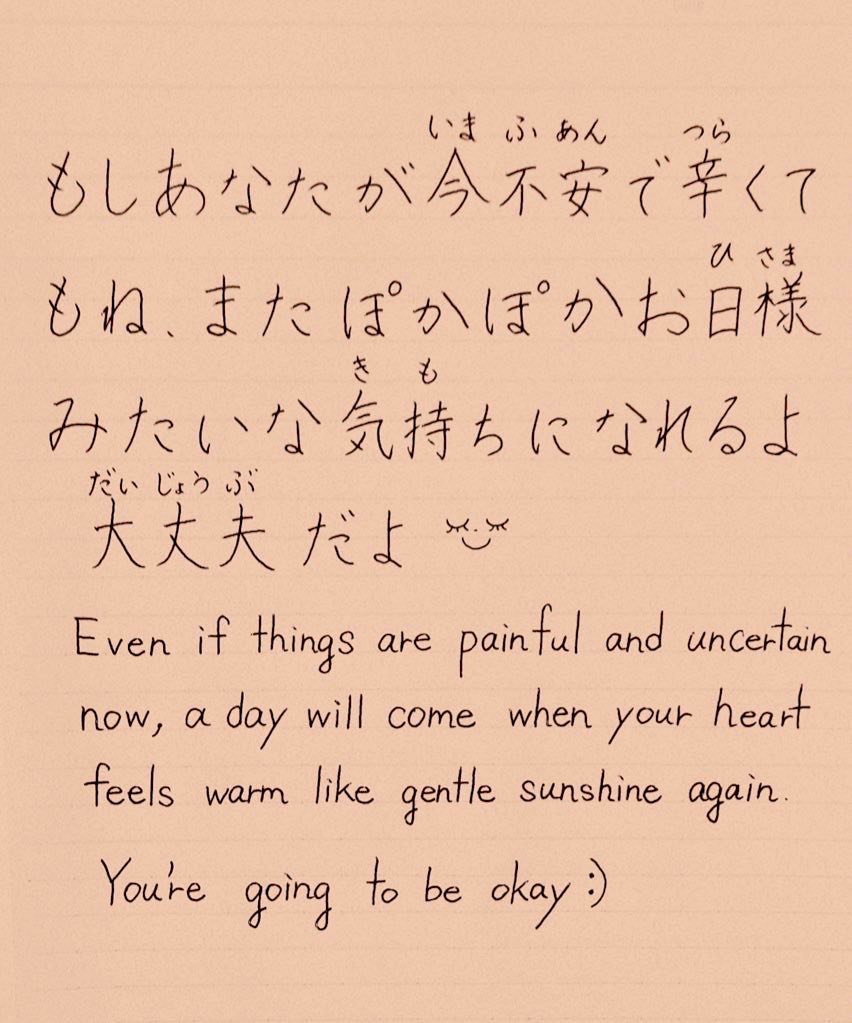 いま ふ あん つら
もしあなたが今不安で辛くて
ひ さま
もね、またぽかぽかお日様
き も
みたいな気持ちになれるよ
だい じょう ぶ
大丈夫だよ
Even if things are painful and uncertain
now, a day will come when your heart
feels warm like gentle sunshine again.
You're going to be okay :)